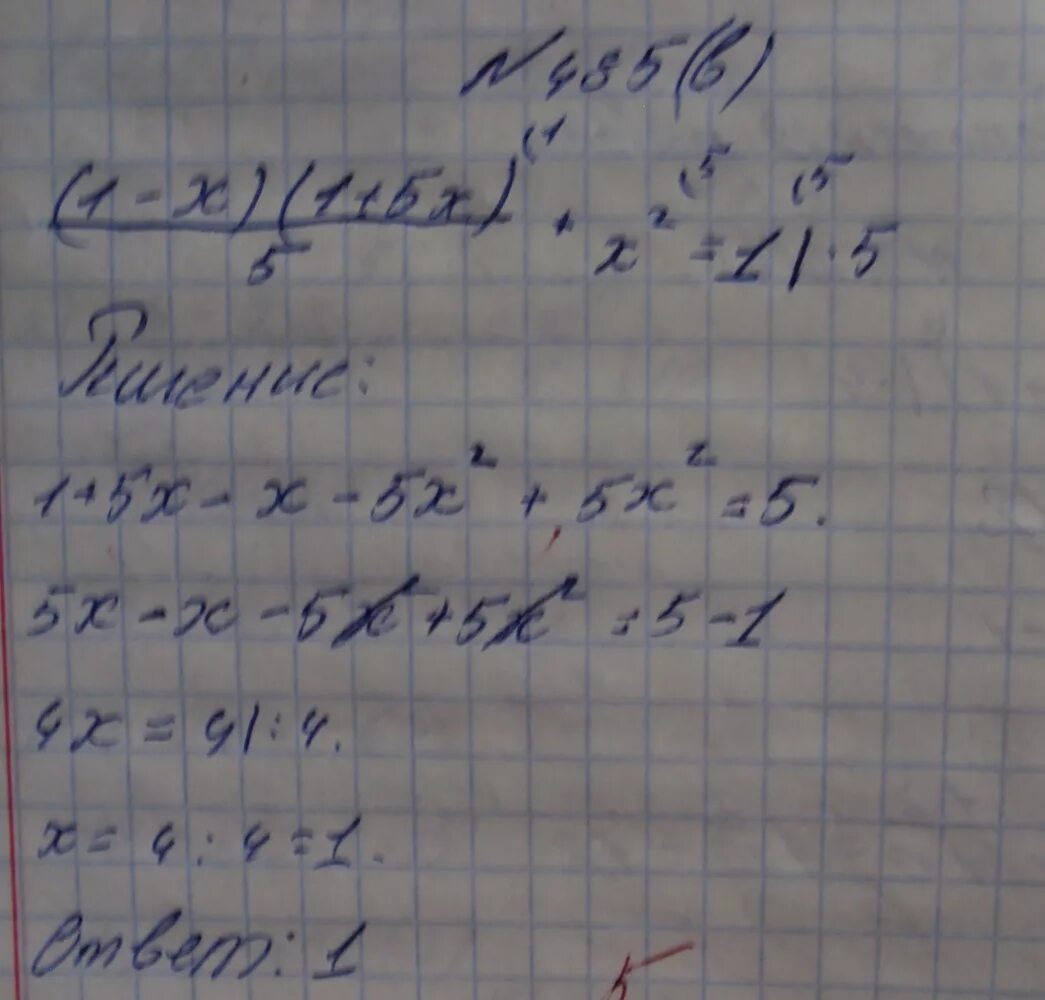 № 485(в)
(1-x)(1+5x)⁽¹ / 5 + x² ⁽⁵ = 1 ⁽⁵ | · 5
Решение:
1+5x - x - 5x² + 5x² = 5.
5x - x - 5x² + 5x² = 5-1
4x = 4 | : 4.
x = 4 : 4 = 1.
Ответ: 1
5